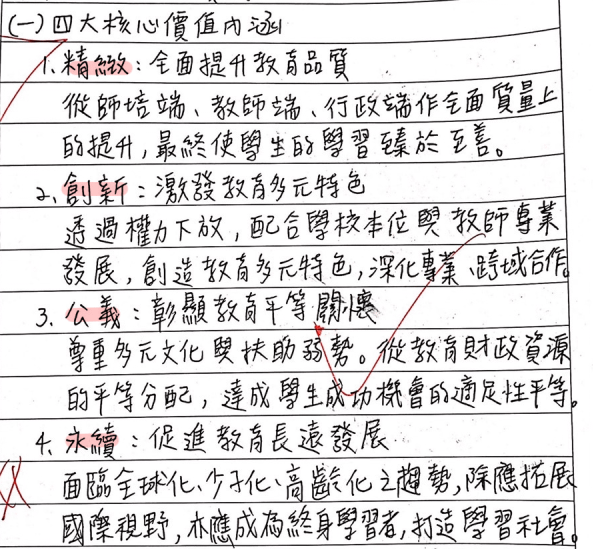 (一)四大核心價值內涵
1.精緻：全面提升教育品質
從師培端、教師端、行政端作全面質量上
的提升，最終使學生的學習臻於至善。
2、創新：激發教育多元特色
透過權力下放，配合學校本位與教師專業
發展，創造教育多元特色，深化專業、跨域合作。
3、公義：彰顯教育平等關懷
尊重多元文化與扶助弱勢。從教育財政資源
的平等分配，達成學生成功機會的適足性平等。
4、永續：促進教育長遠發展
面臨全球化、少子化、高齡化之趨勢，除應拓展
國際視野，亦應成為終身學習者，打造學習社會。